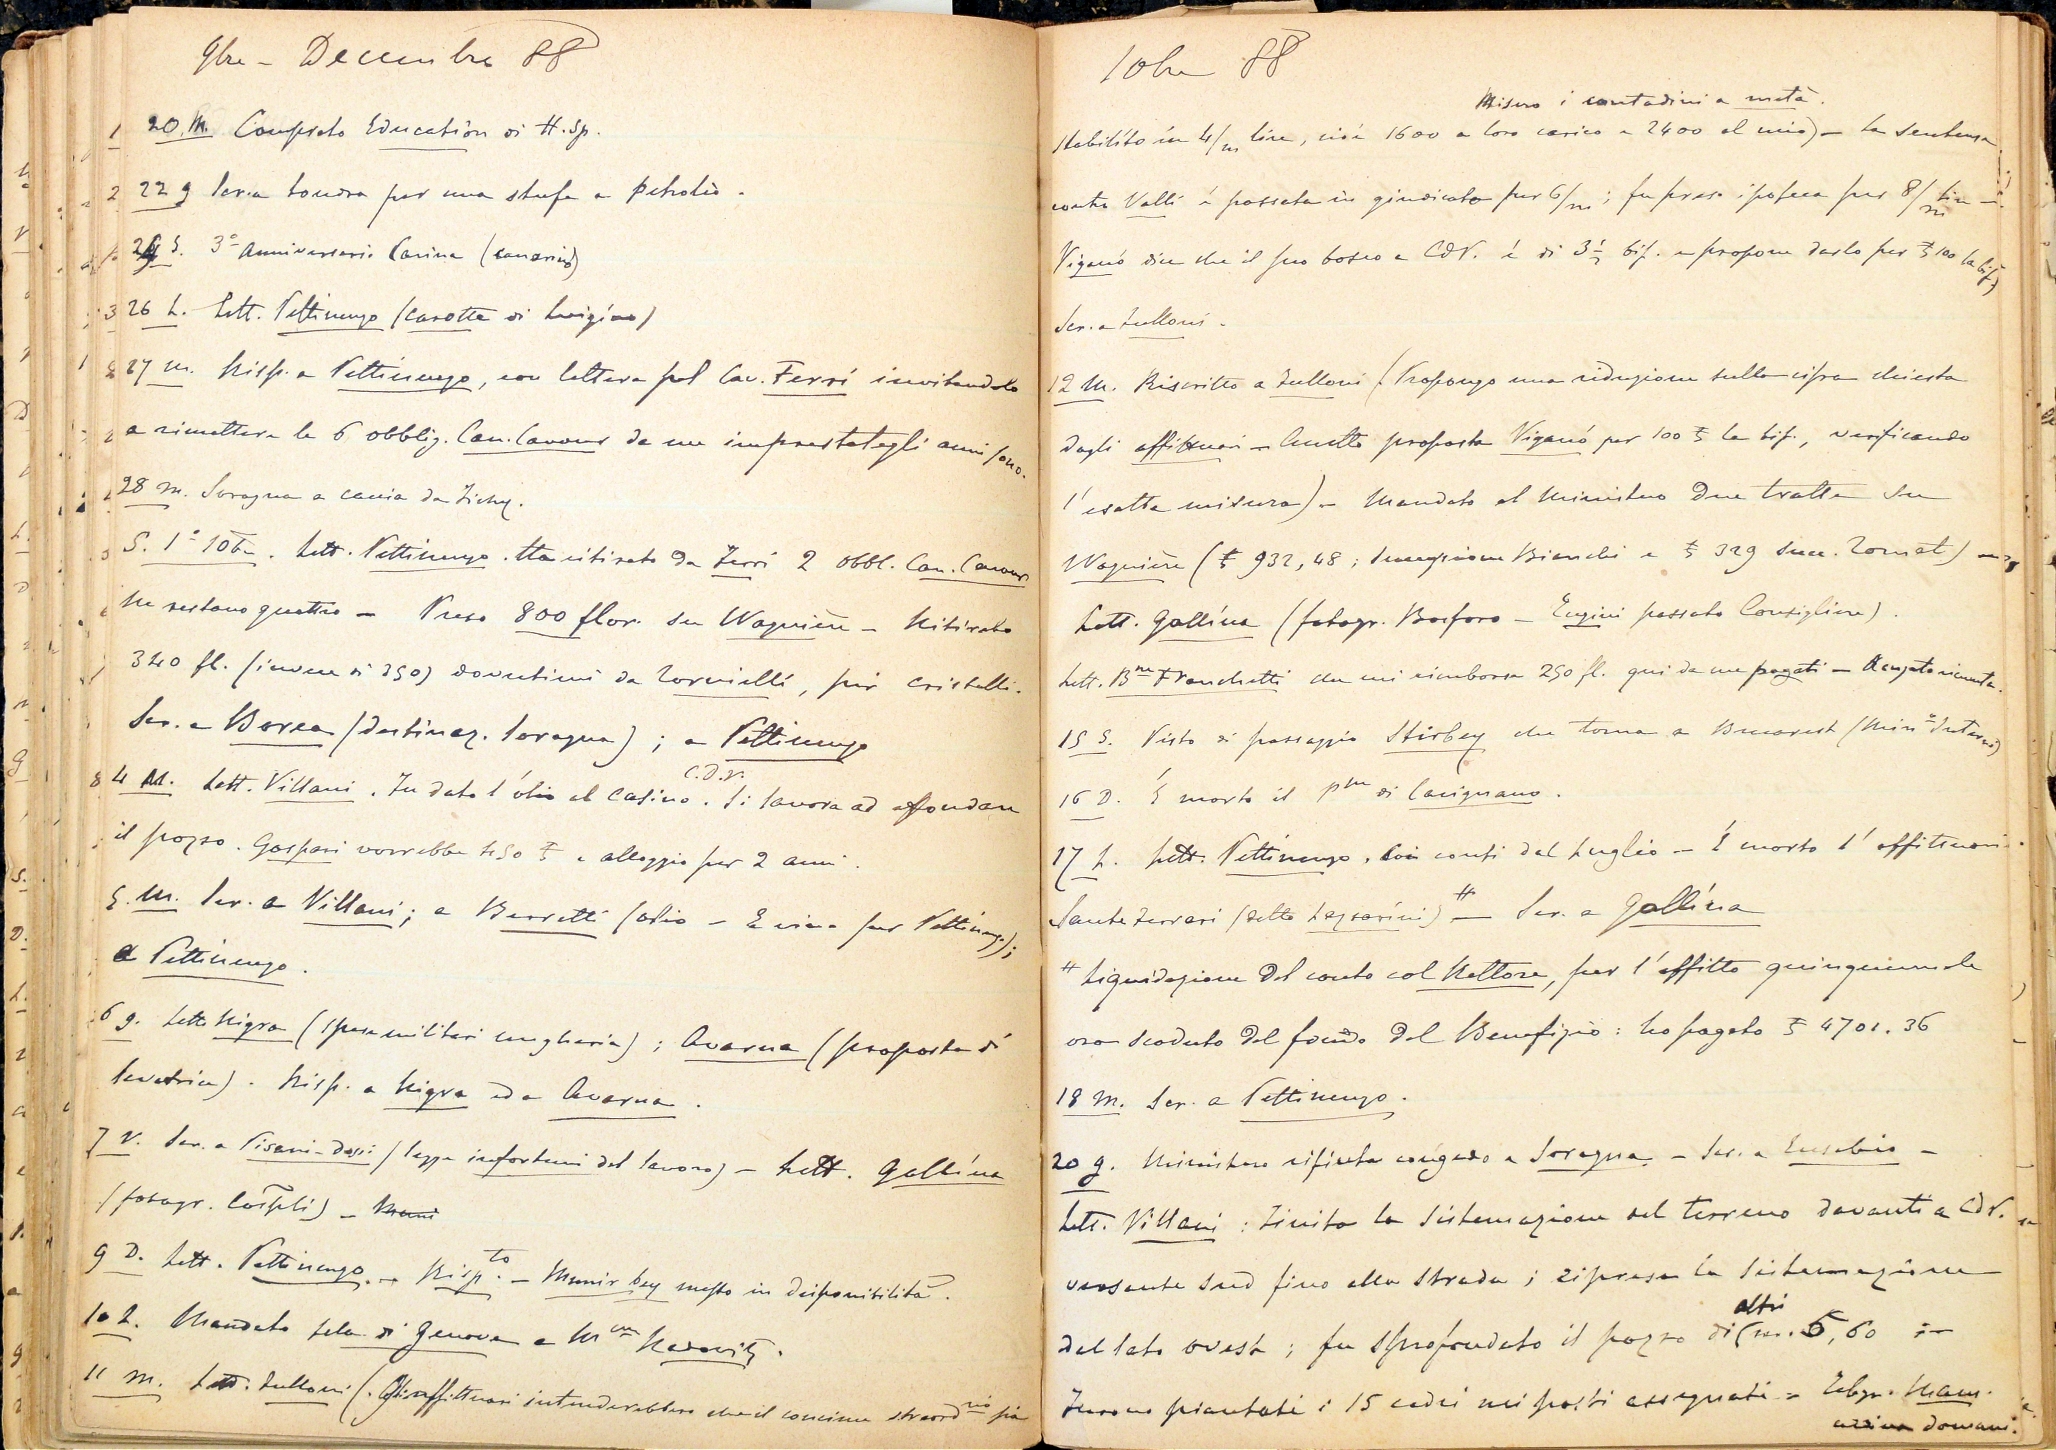 9bre - Decembre 88
20. M. Comprato Education di H. Sp.
22 g Scr. a Londra per una stufa a petrolio.
24 S. 3° anniversario Carina (canarino)
26 L. Lett. Pettinengo (carotte di Luigino)
27 M. Risp. a Pettinengo, con lettera pel Cav. Ferri invitandolo
a rimettere le 6 obblig. Can. Cavour da me imprestategli anni sono.
28 M. Soragna a caccia da Zichy.
S. 1° 10bre. Lett. Pettinengo. Ha ritirato da Ferri 2 obbl. Can. Cavour
Ne restano quattro - Preso 800 flor. su Wagnière - Ritirato
340 fl. (invece di 350) dovutimi da Tornielli, per cristalli.
Scr. a Borea (destinaz. Soragna); a Pettinengo
4 M. Lett. Villani. Fu dato l'olio al casino C.D.V. Si lavora ad affondare
il pozzo. Gaspari vorrebbe 450 £ e alloggio per 2 anni.
5. M. Scr. a Villani; a Berretti (olio - per Pettinengo);
a Pettinengo.
6 g. Lett. Nigra (spese militari ungheria); Avarna (proposta di
levatrice). Risp. a Nigra ed a Avarna.
7 V. Scr. a Pisani-Dossi (legge infortuni del lavoro) - Lett. Gallina
(fotogr.
9 D. Lett. Pettinengo. - Rispto. - Munir bey messo in disponibilità.
10 L. Mandato tela di Genova a Mme
11 M. Lett. Zulloni (Gli affittuari intenderebbero che il concime straordrio sia
10bre 88
Misuro i contadini a metà.
stabilito in 4/m lire, cioè 1600 a loro carico e 2400 al mio) - La sentenza
contro Valli è passata in giudicato per 6/m; fu presa ipoteca per 8/m lire -
Viganò dice che il suo bosco a CDV. è di 3 1/2 bif. e propone darlo per £ 100 la bif.)
Scr. a Zulloni.
12 M. Riscritto a Zulloni (Propongo una riduzione sulla cifra chiesta
dagli affittuari - Accetto proposta Viganò per 100 £ la bif., verificando
l'esatta misura) - Mandato al Ministero due tratte su
Wagnière (£ 932,48; successione Bianchi e £ 329 succ.
Lett. Gallina (fotogr. Bosforo - passato Consigliere).
Lett. Bne Franchetti che mi rimborsa 250 fl. qui da me pagati -
15 S. Visto di passaggio Stirbey che torna a Bucarest (Minro Interni)
16 D. È morto il Pre di Carignano.
17 L. Lett. Pettinengo, coi conti del Luglio - È morto l'affittuario
Sante Ferrari (detto Lazzarini) # - Scr. a Gallina
# Liquidazione del conto col Rettore, per l'affitto quinquennale
ora scaduto del fondo del Benefizio: ho pagato £ 4701.36
18 M. Scr. a Pettinengo.
20 g. Ministero rifiuta congedo a Soragna. - Scr. a Eusebio -
Lett. Villani: Finita la sistemazione del terreno davanti a CDV.
versante sud fino alla strada; ripresa la sistemazione
del lato ovest; fu sprofondato il pozzo di altri (m. 5,60 :-
Furono piantati i 15 cedri nei posti assegnati -
domani.